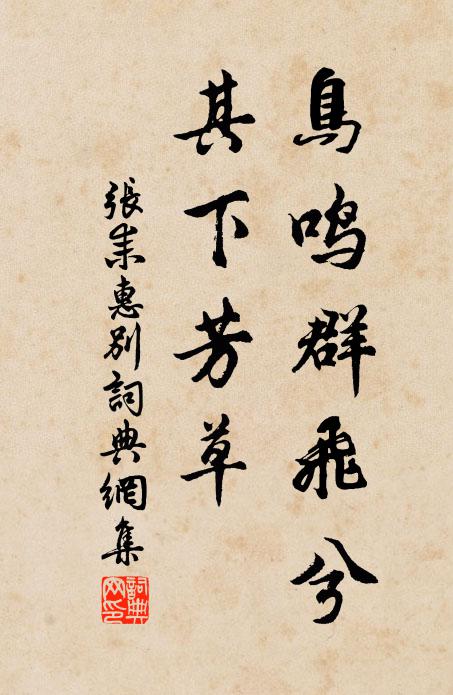 鳥鳴群飛兮
其下芳草
張耒惠別詞典網集
詞典
網印